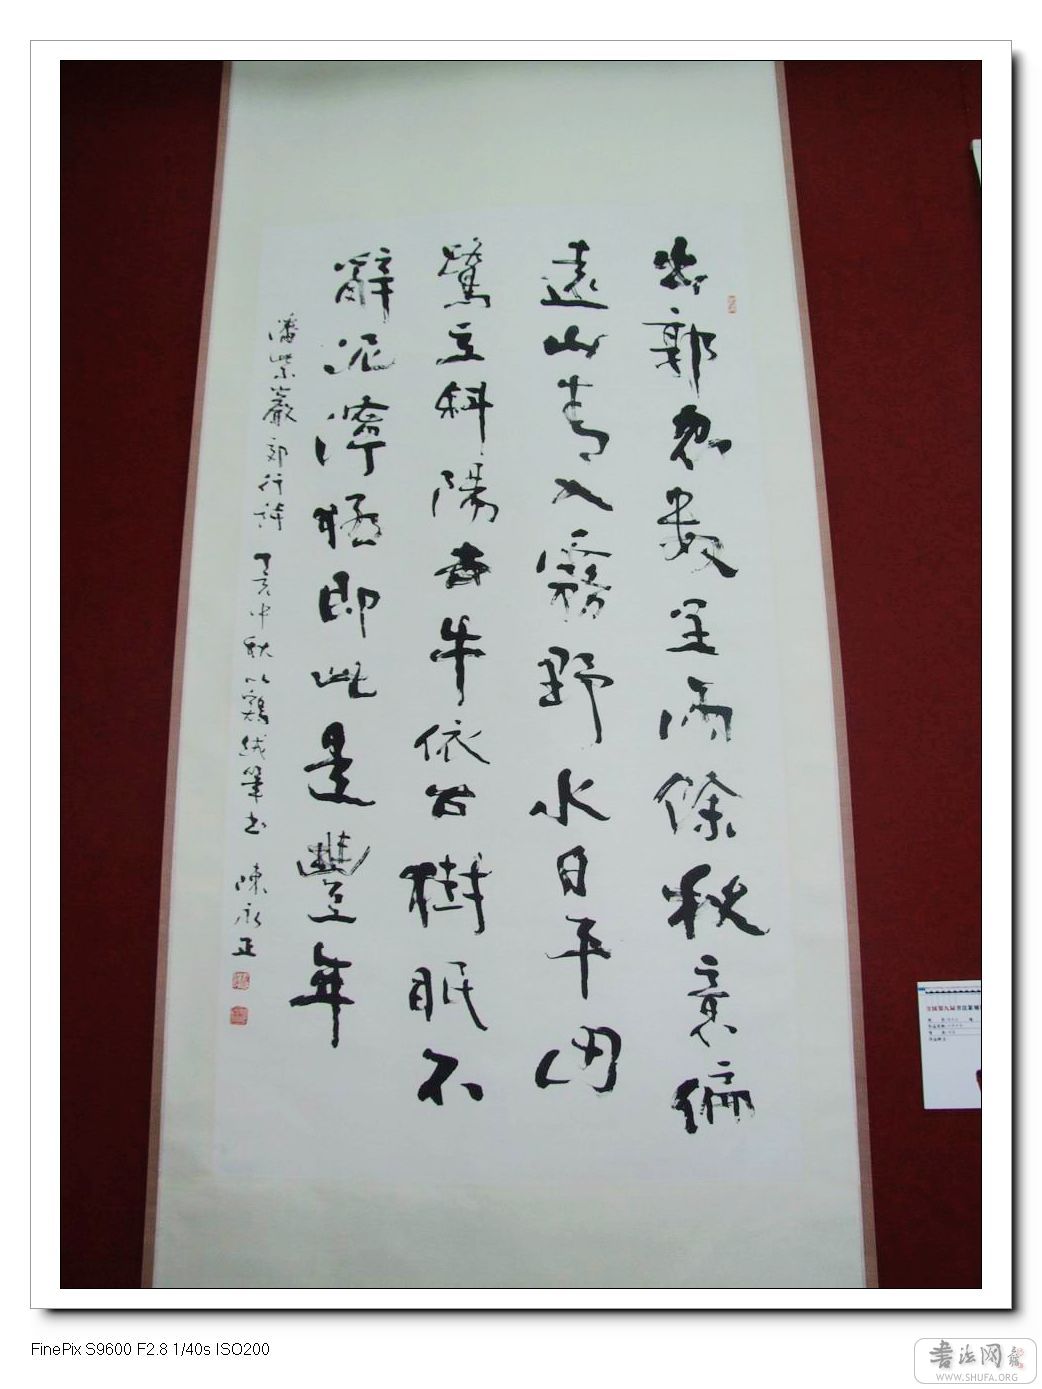 出郭忽數里雨餘秋意偏
遠山青入霧野水白平田
鷺立斜陽牛依古樹眠不
辭泥濘即此是豐年
潘紫巖郊行詩 丁亥中秋以鷄絨筆書 陳永正
FinePix S9600 F2.8 1/40s ISO200
書法网
WWW.SHUFA.ORG